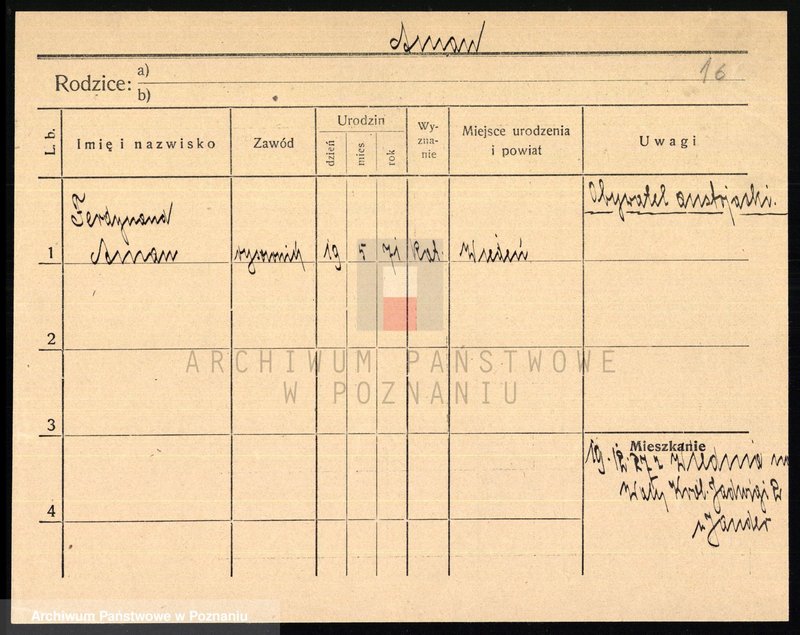 Aman
Rodzice: a)
b)
16
L. b.
Imię i nazwisko
Zawód
Urodzin
dzień
mies
rok
Wy-
zna-
nie
Miejsce urodzenia
i powiat
Uwagi
Obywatel austrjacki.
Ferdynand
1 Aman rysownik 19 5 71 Kat. Wiedeń
2
ARCHIWUM PAŃSTWOWE
W POZNANIU
3
Mieszkanie
19.12.27 z Wiednia
Wały Król. Jadwigi 2
4
u Jander
Archiwum Państwowe w Poznaniu